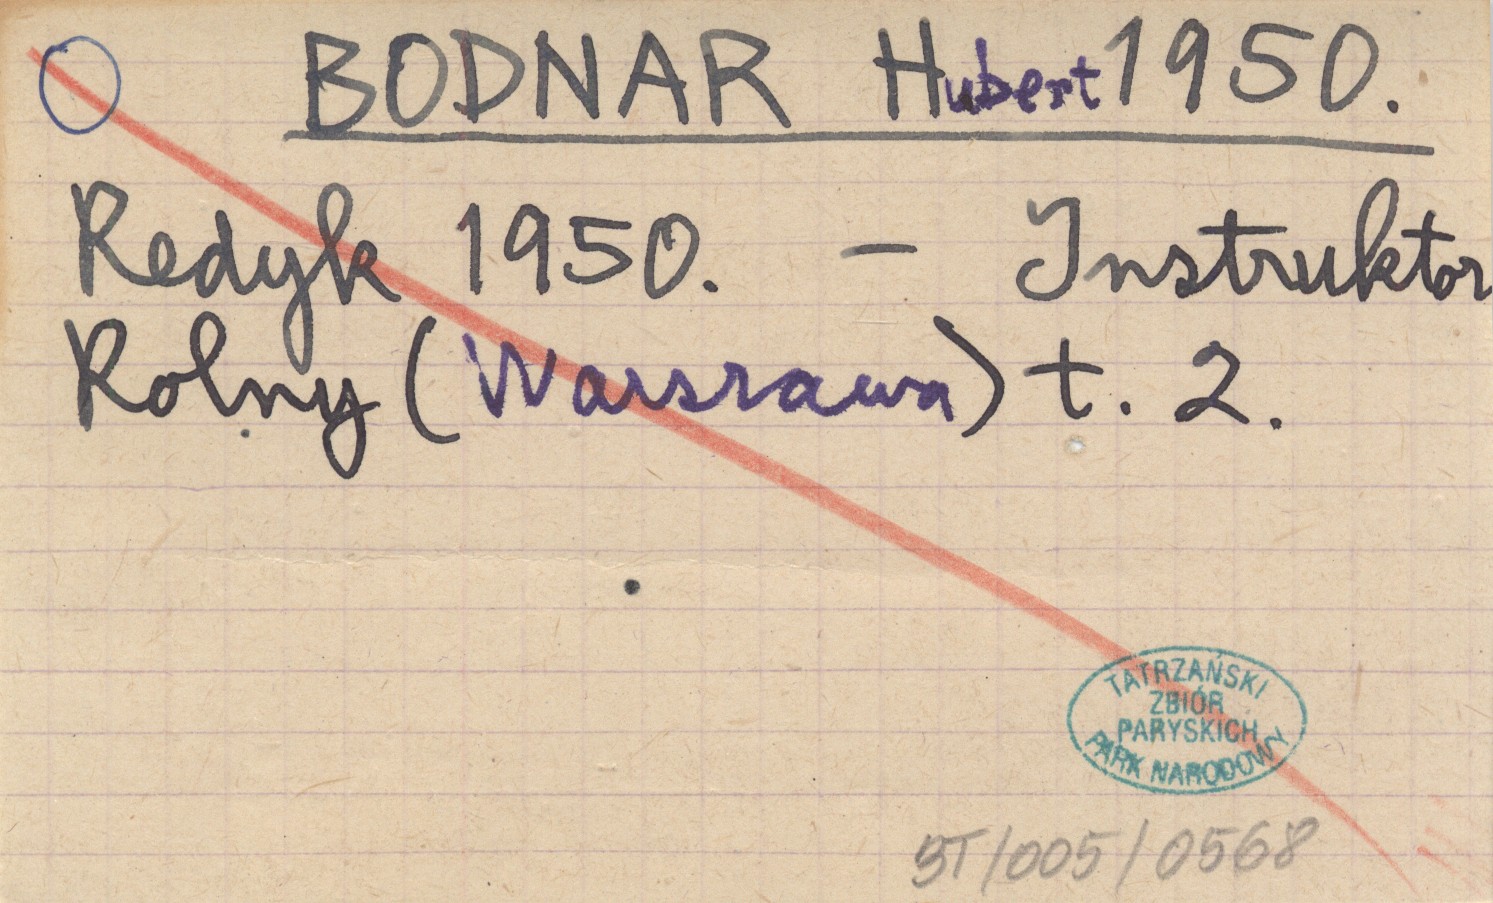 BODNAR Hubert 1950.
Redyk 1950. – Instruktor
Rolny (Warszawa) t. 2.
TATRZAŃSKI
ZBIÓR
PARYSKICH
PARK NARODOWY
BT/005/0568